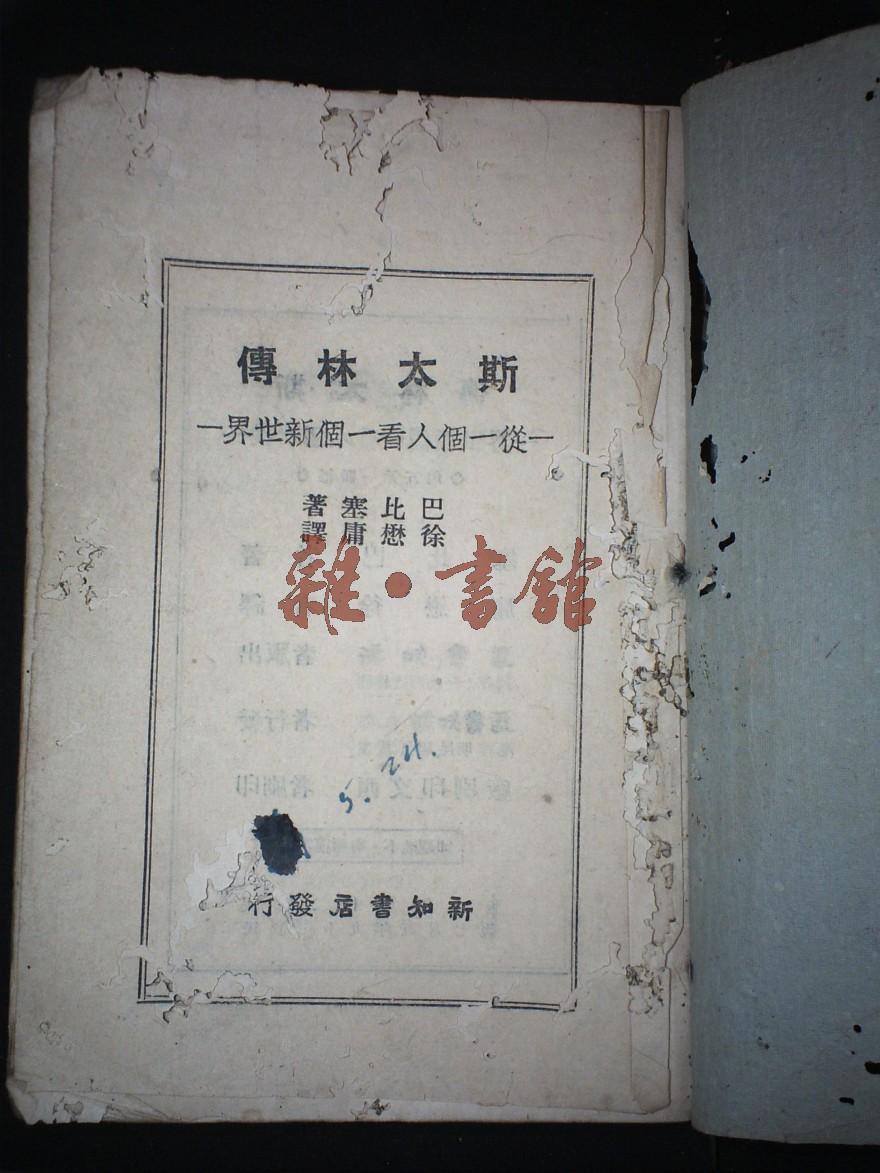 斯太林傳
—從一個人看一個新世界—
巴比塞著
徐懋庸譯
雜·書館
5.24.
新知書店發行